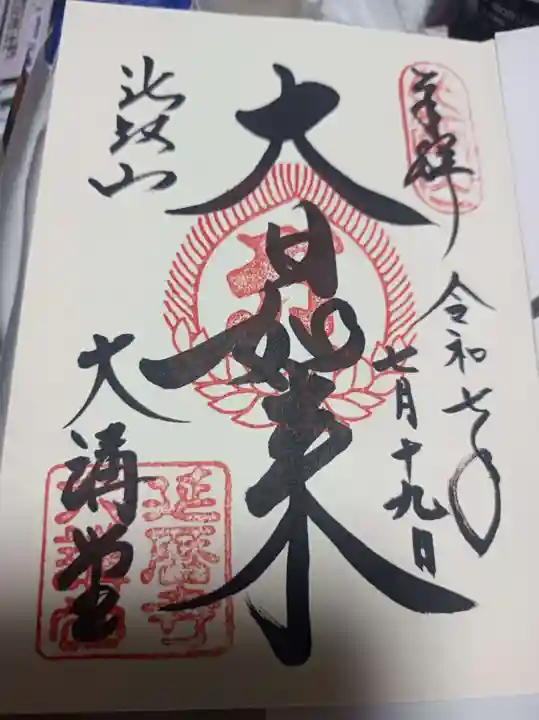 奉拝
令和七年
七月十九日
大日如来
比叡山
大講堂
延暦寺
大講堂